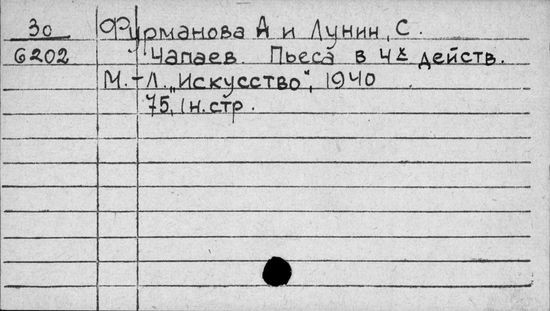 30 Фурманова А и Лунин, С.
6202 Чапаев. Пьеса в 4х действ.
М.-Л. „Искусство", 1940
75, 1 н. стр.